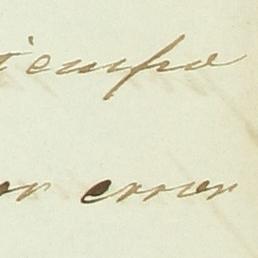 tiempo
or error